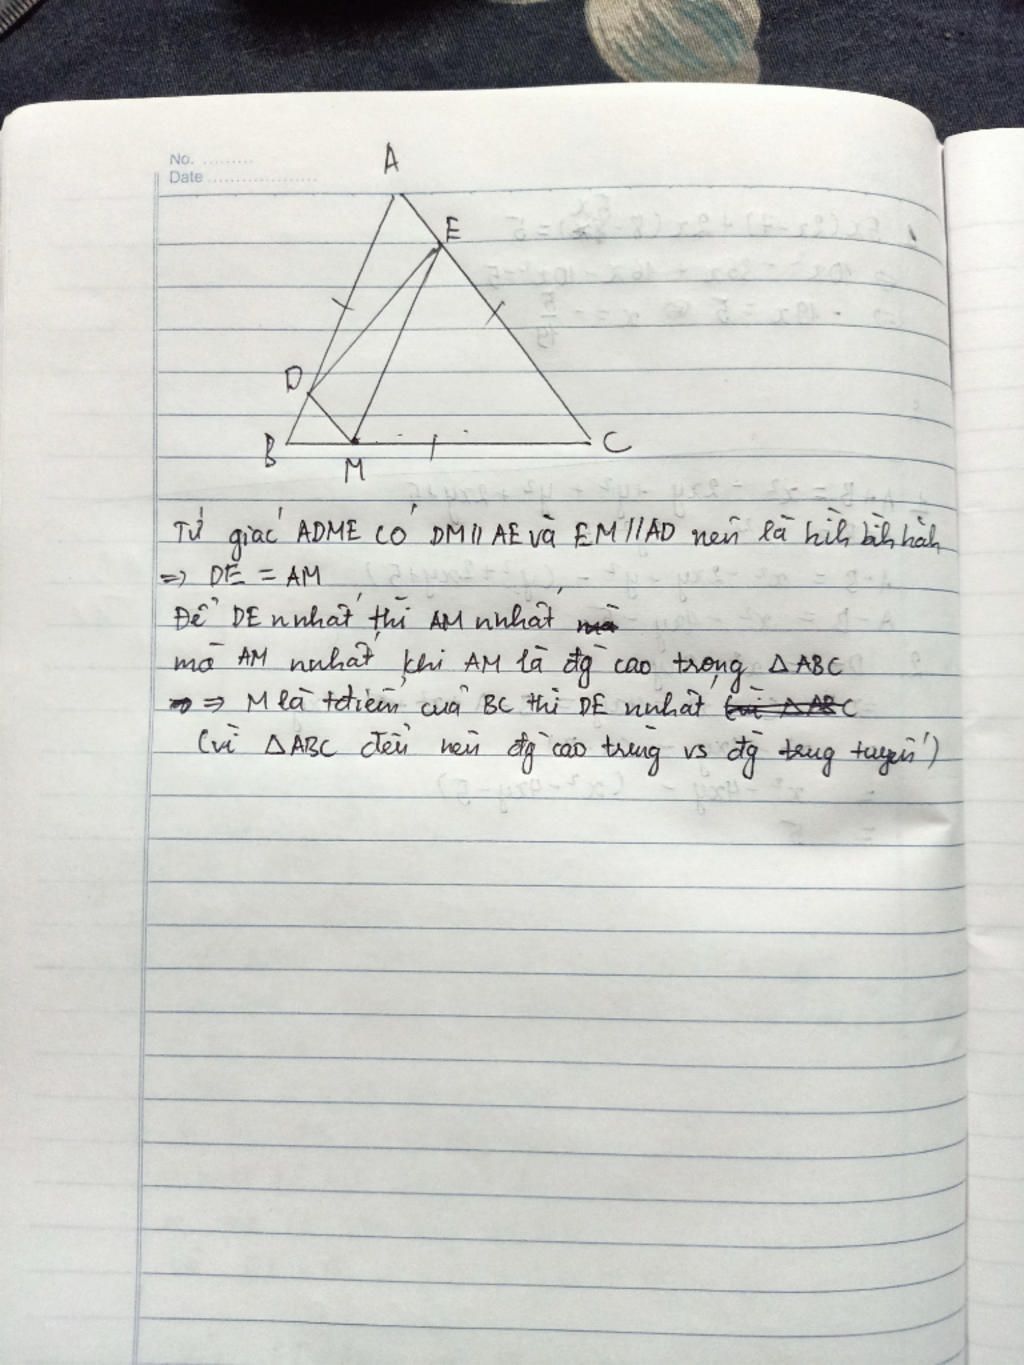 No. .........
Date ...................
A
E
D
B
M
C
Tứ giác ADME có DM // AE và EM // AD nên là hìh bìh hàh
=> DE = AM
Để DE nnhất thì AM nnhất
mà AM nnhất khi AM là đg cao trong △ABC
=> M là tđiểm của BC thì DE nnhất
(vì △ABC đều nên đg cao trùng vs đg trug tuyến)